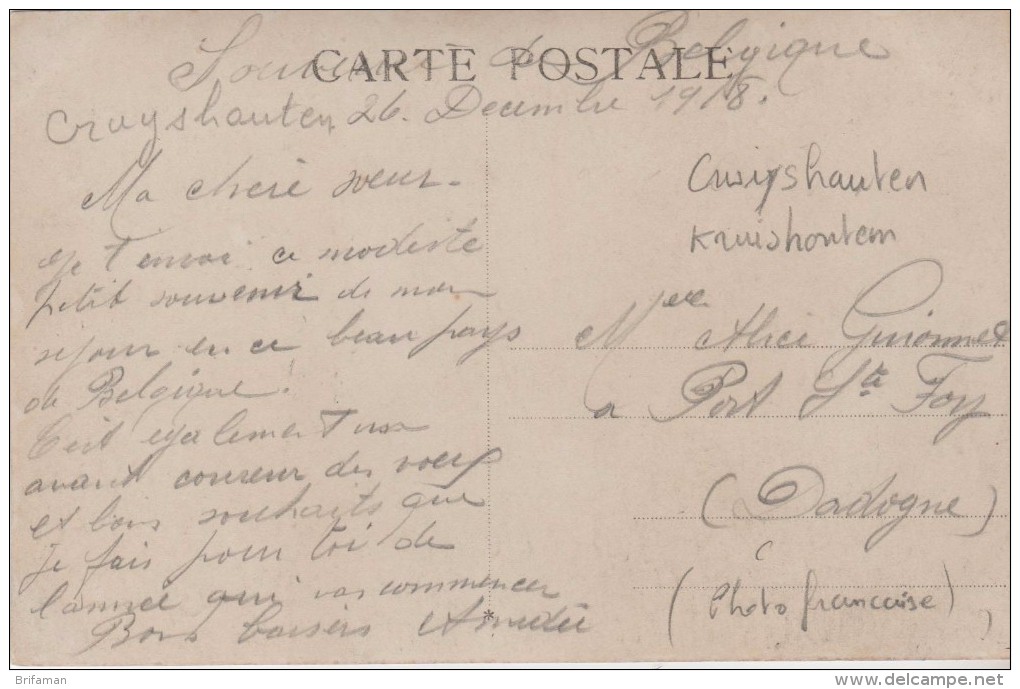 CARTE POSTALE
Souvenir de Belgique
Cruyshauten 26. Decembre 1918.
Ma chere soeur.
Je t envoi ce modeste
petit souvenir de mon
sejour en ce beau pays
de Belgique!
C'est egalement un
avant coureur des voeux
et bons souhaits que
je fais pour toi de
l'année qui vas commencer
Bons baisers Amédée
Cruyshauten
Kruishoutem
Melle Alice Guionnet
a Port Ste Foy
(Dadogne)
(Photo francaise)
Brifaman
delcampe.net